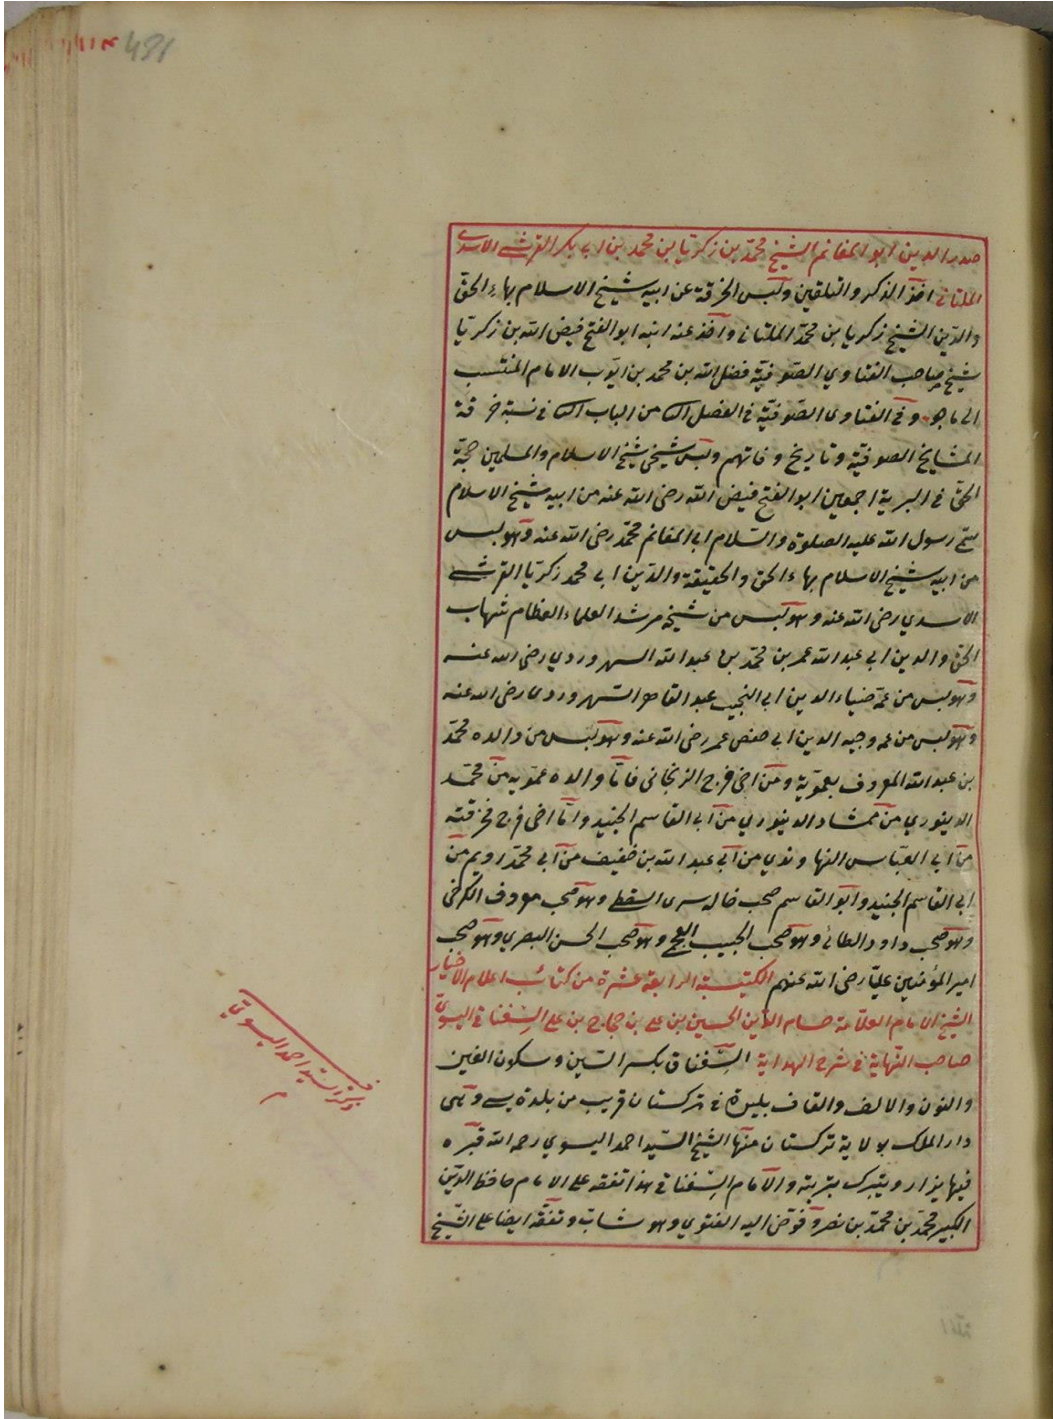 481
صدر الدين ابو المغانم الشيخ محمد بن زكريا بن محمد بن ابى بكر القرشى الاسدى
الملتانى اخذ الذكر والتلقين ولبس الخرقة عن ابيه شيخ الاسلام بهاء الحق
والدين الشيخ زكريا بن محمد الملتانى وأخذ عنه ابنه ابو الفتح فيض الله بن زكريا
شيخ صاحب الفتاوى الصوفية فضل الله بن محمد بن ايوب الامام المنتسب
الى ماجو وفى الفتاوى الصوفية فى الفصل من الباب فى نسبة خرقة
المشايخ الصوفية وتاريخ وفاتهم ولبس شيخى شيخ الاسلام والمسلمين حجة
الحق فى البرية اجمعين ابو الفتح فيض الله رضى الله عنه من ابيه شيخ الاسلام
سمى رسول الله عليه الصلوة والسلام ابى المغانم محمد رضى الله عنه وهو لبس
من ابيه شيخ الاسلام بهاء الحق والحقيقة والدين ابى محمد زكريا القرشى
الاسدي رضى الله عنه وهو لبس من شيخه مرشد العلماء العظام شهاب
الحق والدين ابى عبد الله عمر بن محمد بن عبد الله السهروردي رضى الله عنه
وهو لبس من عمه ضياء الدين ابى النجيب عبد القاهر السهروردى رضى الله عنه
وهو لبس من عمه وجيه الدين ابى حفص عمر رضى الله عنه وهو لبس من والده محمد
بن عبد الله المعروف بعموية ومن اخى فرج الزنجانى فاما والده عموية من محمد
الدينوري من ممشاد الدينوري من ابى القاسم الجنيد واما اخى فرج فخرقته
من ابى العباس النهاوندي من ابى عبد الله بن خفيف من ابى محمد رويم من
ابى القاسم الجنيد وابو القاسم صحب خاله سرى السقطى وهو صحب معروف الكرخى
وهو صحب داود الطائى وهو صحب الحبيب العجمى وهو صحب الحسن البصري وهو صحب
امير المؤمنين عليا رضى الله عنهم الكتيبة الرابعة عشرة من كتائب اعلام الاخيار
الشيخ الامام العلامة حسام الدين الحسين بن على بن حجاج بن على السغناقى اليسوى
صاحب النهاية فى شرح الهداية السغناق بكسر السين وسكون الغين
والنون والالف والقاف بليدة فى تركستان قريب من بلدة يسى وهى
دار الملك بولاية تركستان منها الشيخ السيد احمد اليسوي رحمه الله قبره
فيها يزار ويتبرك بتربته والامام السغناقى هذا تفقه على الامام حافظ الدين
الكبير محمد بن محمد بن نصر وفوض اليه الفتوي وهو شاب وتفقه ايضا على الشيخ
ذكر السيد احمد اليسوى